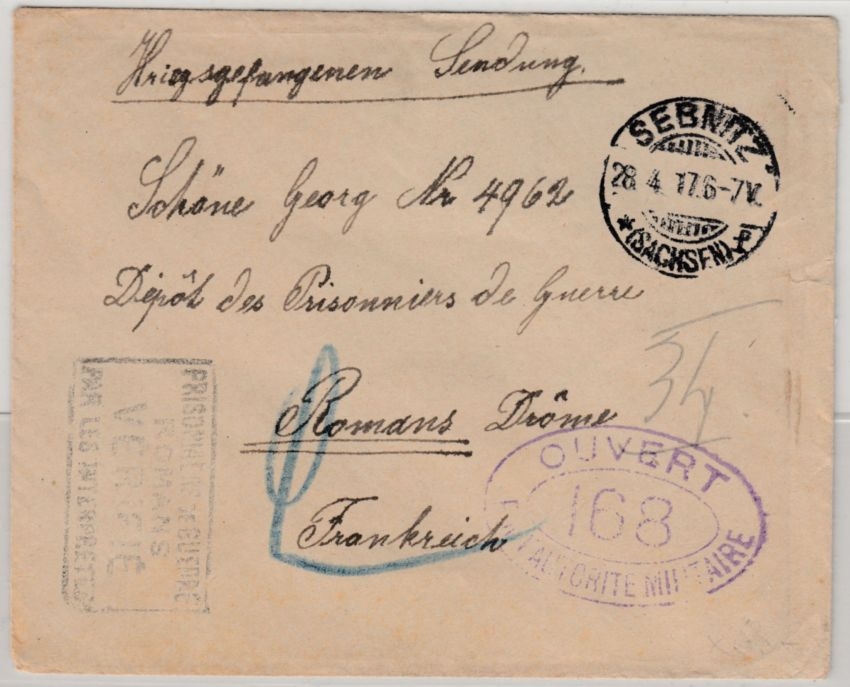 Kriegsgefangenen Sendung.
SEBNITZ
28. 4. 17. 6-7V.
* (SACHSEN) P
Schöne Georg Nr 4962
Dépôt des Prisonniers de Guerre
34
Romans Drôme
Frankreich
OUVERT
168
PAR L'AUTORITÉ MILITAIRE
PRISONNIERS DE GUERRE
ROMANS
VERIFIÉ
PAR LES INTERPRETES